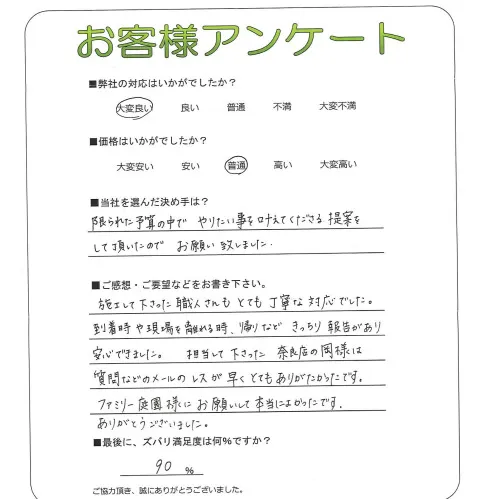 お客様アンケート
■弊社の対応はいかがでしたか？
大変良い 良い 普通 不満 大変不満
■価格はいかがでしたか？
大変安い 安い 普通 高い 大変高い
■当社を選んだ決め手は？
限られた予算の中で やりたい事を叶えてくださる提案を
して頂いたので お願い致しました.
■ご感想・ご要望などをお書き下さい。
施工して下さった職人さんも とても 丁寧な 対応でした。
到着時や現場を離れる時、帰りなど きっちり 報告があり
安心できました。 担当して下さった 奈良店の岡様は
質問などのメールのレスが早くとてもありがたかったです。
ファミリー庭園様に お願いして本当によかったです.
ありがとうございました。
■最後に、ズバリ満足度は何%ですか？
90 %
ご協力頂き、誠にありがとうございました。